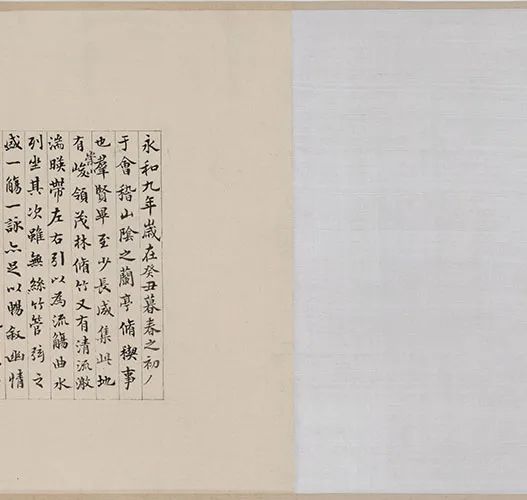 永和九年歲在癸丑暮春之初
于會稽山陰之蘭亭脩禊事
也羣賢畢至少長咸集此地
有崇山峻領茂林脩竹又有清流激
湍暎帶左右引以為流觴曲水
列坐其次雖無絲竹管弦之
盛一觴一詠亦足以暢叙幽情